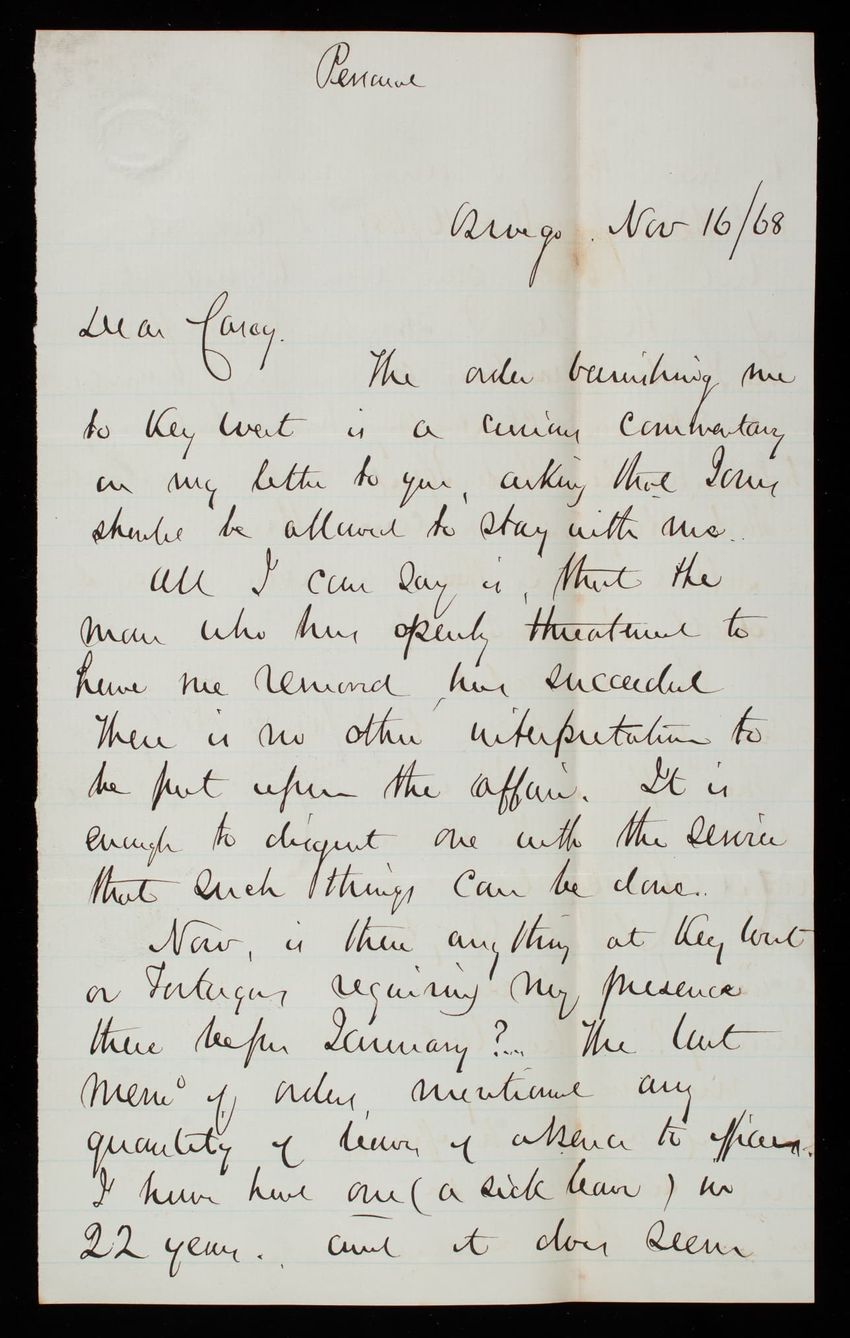 Personal
Oswego. Nov 16/68
Dear Casey.
The order banishing me
to Key West is a curious commentary
on my letter to you, asking that Jones
should be allowed to stay with me.
All I can say is, that the
man who has openly threatened to
have me removed, has succeeded
There is no other interpretation to
be put upon the affair. It is
enough to disgust one with the service
that such things can be done.
Now, is there anything at Key West
or Tortugas requiring my presence
there before January? The last
memo of orders, mentioned any
quantity of leaves of absence to officers.
I have had one (a sick leave) in
22 years. and it does seem